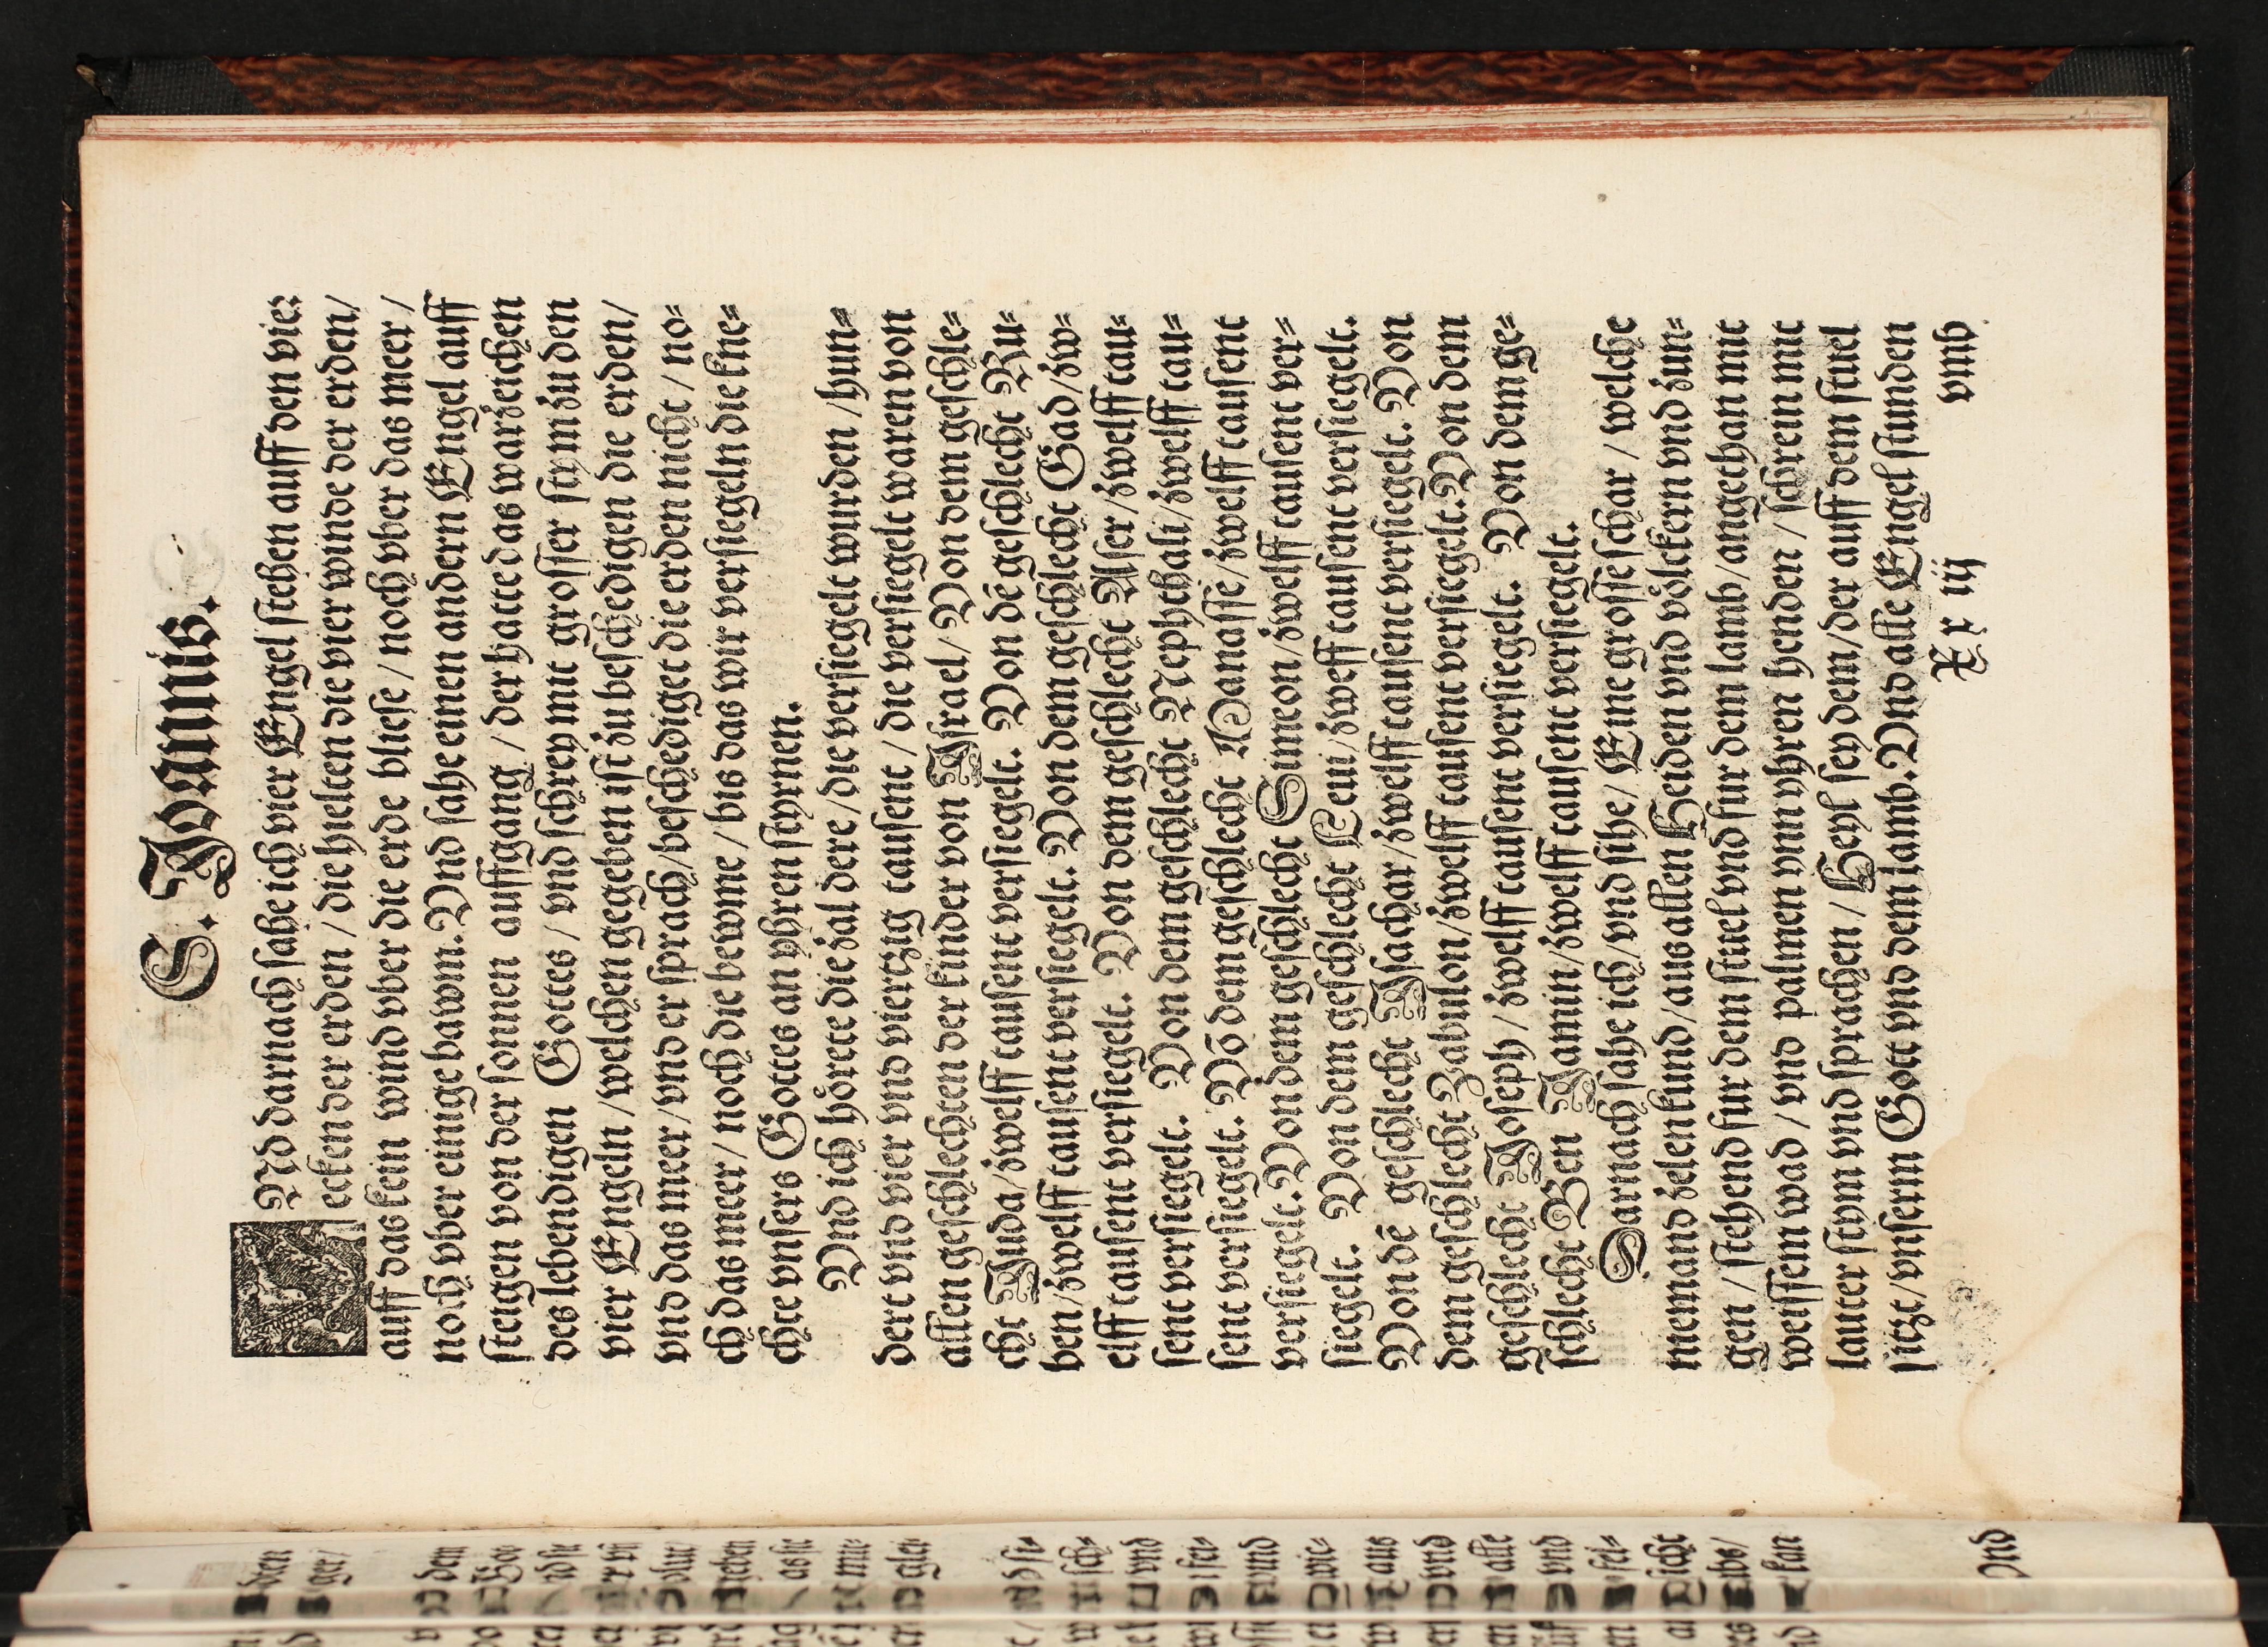 S. Joannis.
VNd darnach sahe ich vier Engel stehen auff den vier
ecken der erden / die hielten die vier winde der erden/
auff das kein wind vber die erde bliese / noch vber das meer /
noch vber einige bawm. Vnd sahe einen andern Engel auff
steygen von der sonnen auffgang / der hatte das warzeichen
des lebendigen Gottes / vnd schrey mit grosser stym zu den
vier Engeln / welchen gegeben ist zu beschedigen die erden/
vnd das meer / vnd er sprach/beschediget die erden nicht / no⸗
ch das meer / noch die bewme / bis das wir versiegeln die kne⸗
chte vnsers Gottes an yhren styrnen.
Vnd ich hörete die zal dere / die versiegelt wurden /hun⸗
dert vnd vier vnd viertzig tausent / die versiegelt waren von
allen geschlechten der kinder von Israel/ Von dem geschle⸗
cht Juda/zwelff tausent versiegelt. Von dē geschlecht Ru⸗
ben/zwelff tausent versiegelt. Von dem geschlecht Gad/zw⸗
elff tausent versiegelt. Von dem geschlecht Aser/zwelff tau⸗
sent versiegelt. Von dem geschlecht Nephthali/zwelff tau⸗
sent versiegelt. Vō dem geschlecht Manasse/zwelff tausent
versiegelt. Von dem geschlecht Simeon/zwelff tausent ver⸗
siegelt. Von dem geschlecht Leui/zweff tausent versiegelt.
Von dē geschlecht Isachar/zwelff tausent versiegelt. Von
dem geschlecht Zabulon/zwelff tausent versiegelt. Von dem
geschlecht Joseph / zwelff tausent versiegelt. Von dem ge⸗
schlecht Ben Jamin/zwelff tausent versiegelt.
Darnach sahe ich/vnd sihe/ Eine grosse schar / welche
niemand zelen kund/aus allen Heiden vnd völckern vnd zun⸗
gen / stehend fur dem stuel vnd fur dem lamb/angethan mit
weissem wad / vnd palmen ynn yhren henden / schrein mit
lauter stym vnd sprachen / Heyl sey dem/der auff dem stuel
sitzt/vnserm Gott vnd dem lamb. Vnd alle Engel stunden
Xx iij vmb